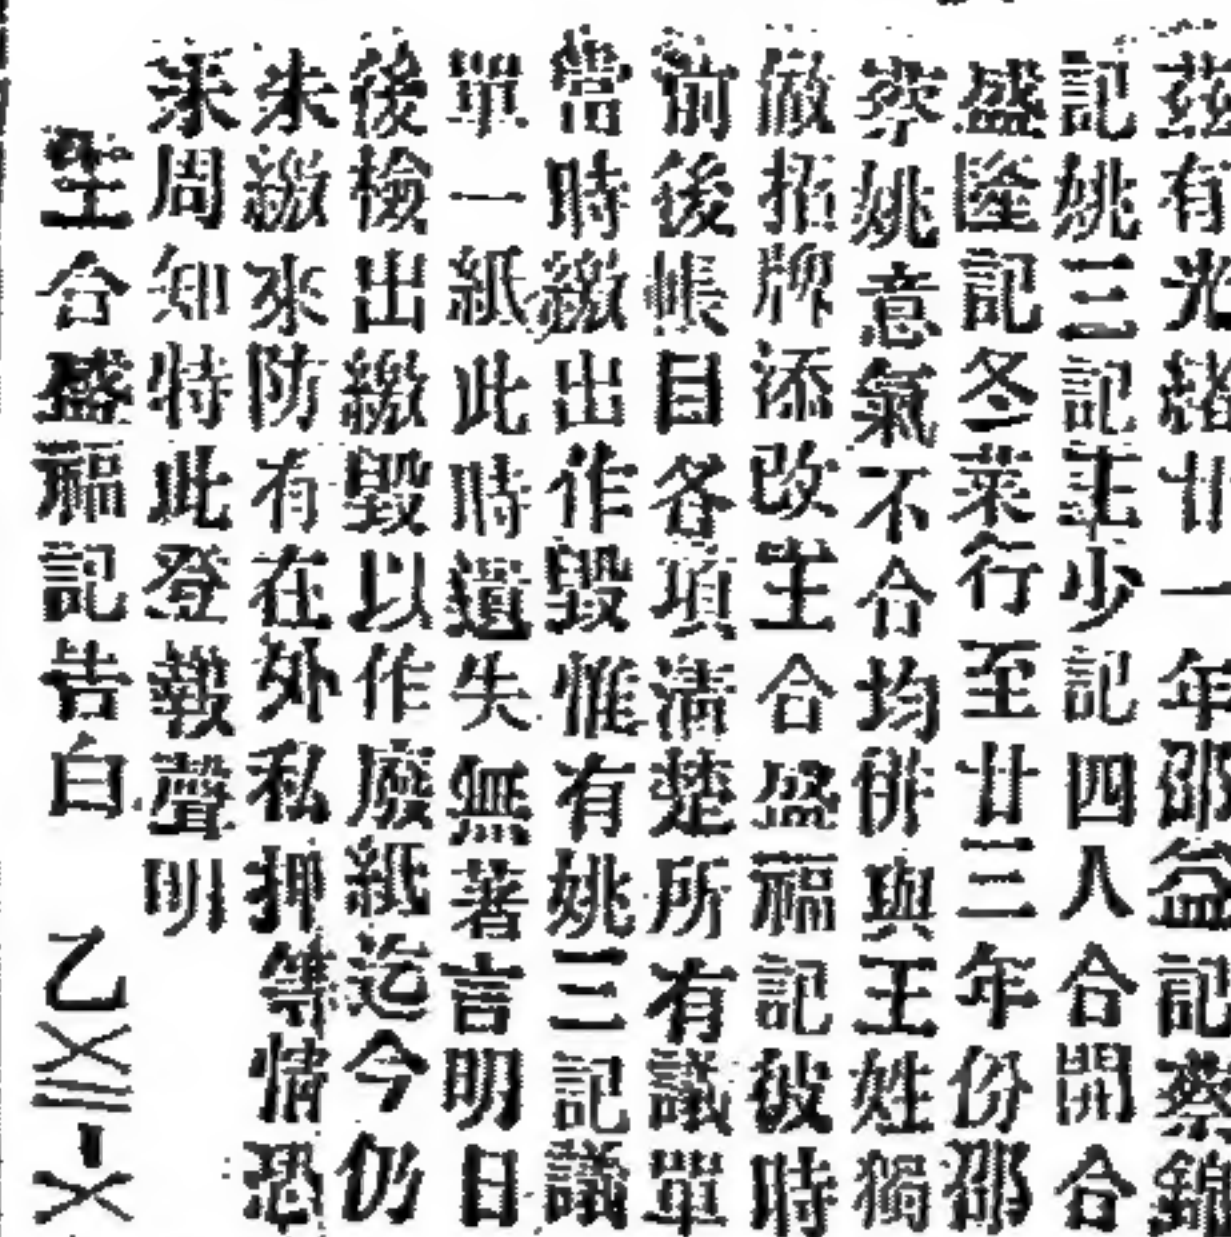 茲有光緒廿一年邵益記蔡錦
記姚三記王少記四人合開合
盛隆記冬菜行至廿三年份邵
蔡姚意氣不合均併與王姓獨
做招牌添改王合盛福記彼時
前後帳目各項清楚所有議單
當時繳出作毀惟有姚三記議
單一紙此時遺失無著言明日
後檢出繳毀以作廢紙迄今仍
未繳來防有在外私押等情恐
未周知特此登報聲明
王合盛福記告白 乙〤〣〡〤